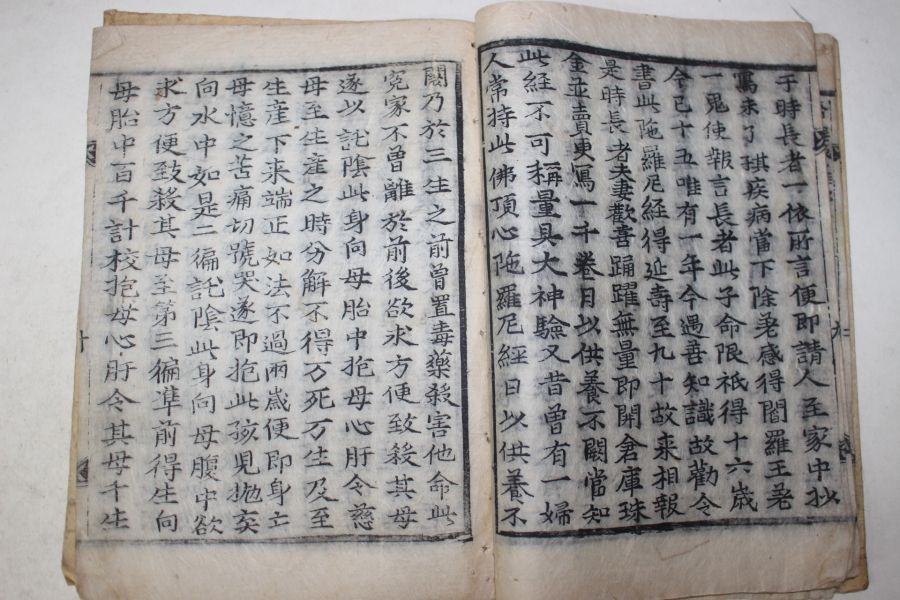 于時長者一依所言便即請人至家中抄
寫未了琪疾病當下除差感得閻羅王差
一鬼使報言長者此子命限祇得十六歲
今已十五唯有一年今遇善知識故勸令
書此陁羅尼經得延壽至九十故来相報
是時長者夫妻歡喜踊躍無量即開倉庫珠
金並賣更寫一千卷月以供養不闕當知
此經不可稱量具大神驗又昔曾有一婦
人常持此佛頂心陁羅尼經日以供養不
九
闕乃於三生之前曾置毒藥殺害他命此
寃家不曾離於前後欲求方便致殺其母
遂以託陰此身向母胎中抱母心肝令慈
母至生産之時分解不得万死万生及至
生産下来端正如法不過兩歲便即身亡
母憶之苦痛切號哭遂即抱此孩兒抛弃
向水中如是二徧託陰此身向母腹中欲
求方便致殺其母至第三徧准前得生向
母胎中百千計校抱母心肝令其母千生
十